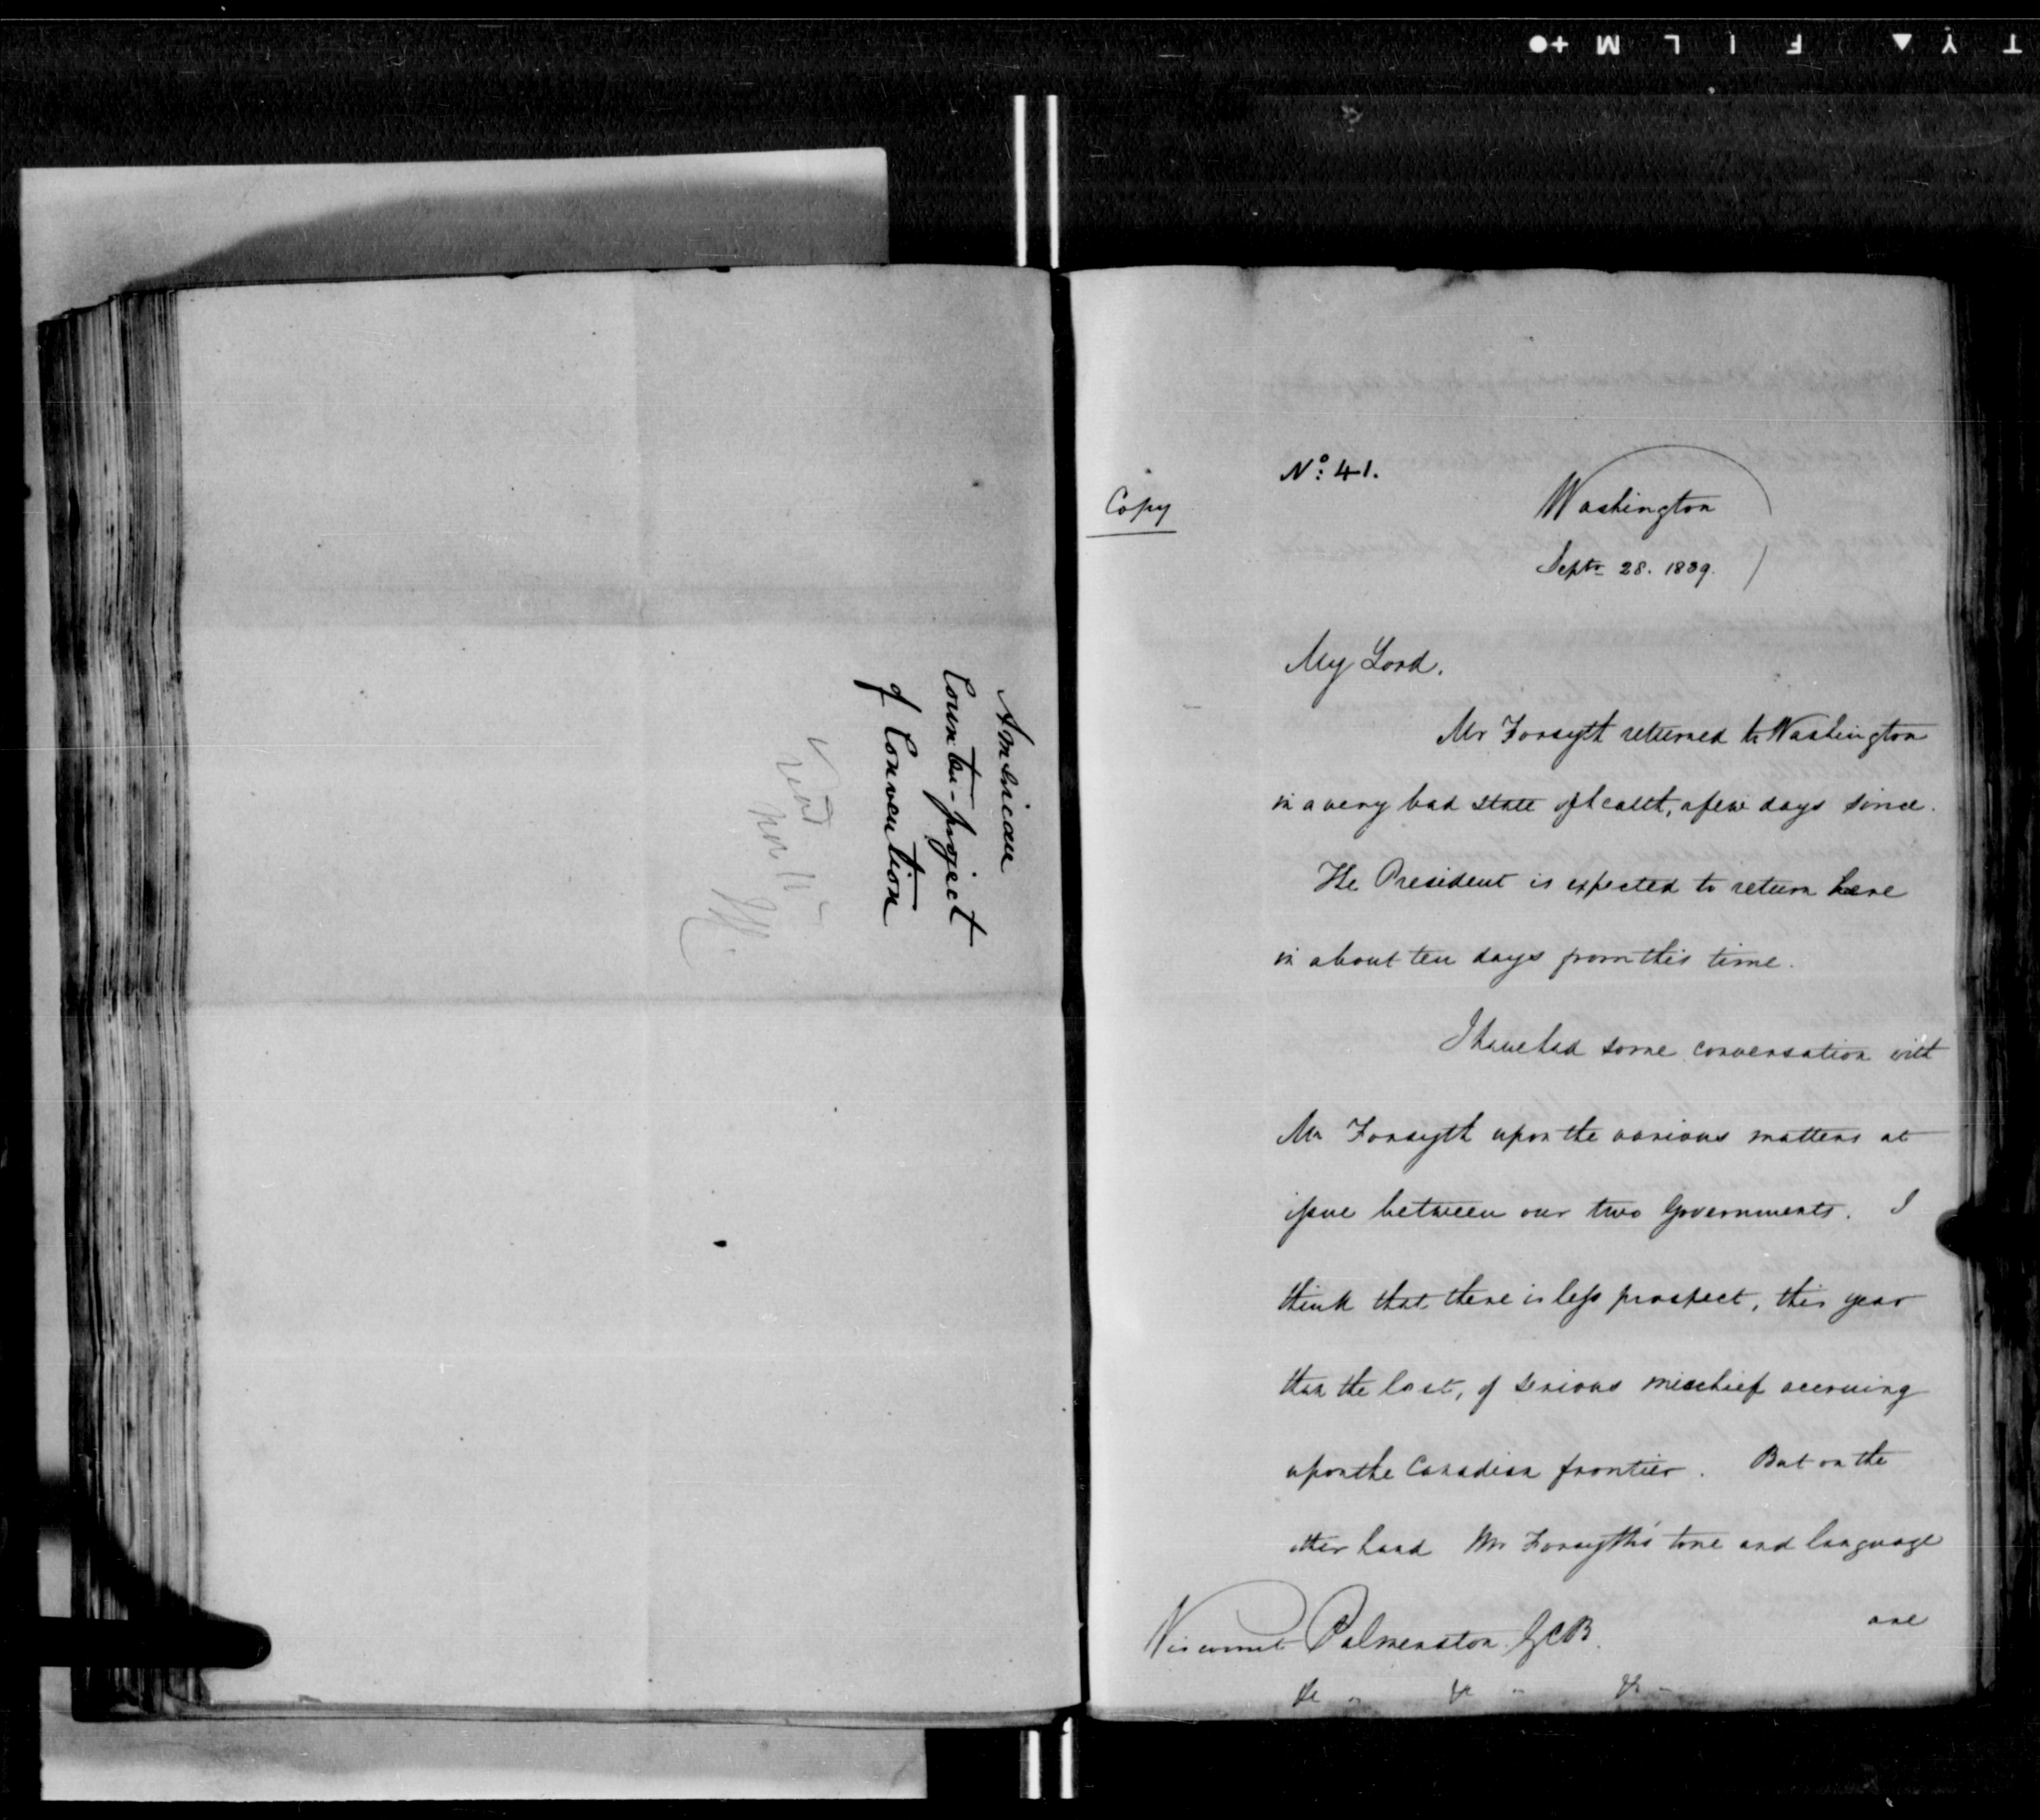 American
Counter-project
of Convention
No: 41.
Copy
Washington
Septr 28. 1839.
My Lord.
Mr Forsyth returned to Washington
in a very bad state of health, a few days since.
The President is expected to return here
in about ten days from this time.
I have had some conversation with
Mr Forsyth upon the various matters at
issue between our two Governments. I
think that there is less prospect, this year
than the last, of serious mischief accruing
upon the Canadian frontier. But on the
other hand Mr Forsyth's tone and language
are
Viscount Palmerston GCB.
&c " &c " &c "